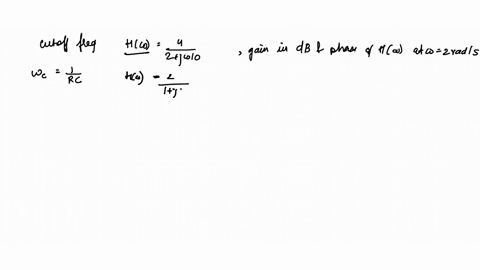 cutoff freq H(ω) = 4 / 2+jω10 , gain in dB & phase of H(ω) at ω=2rad/s
ωc = 1 / RC H(ω) = 2 / 1+j.